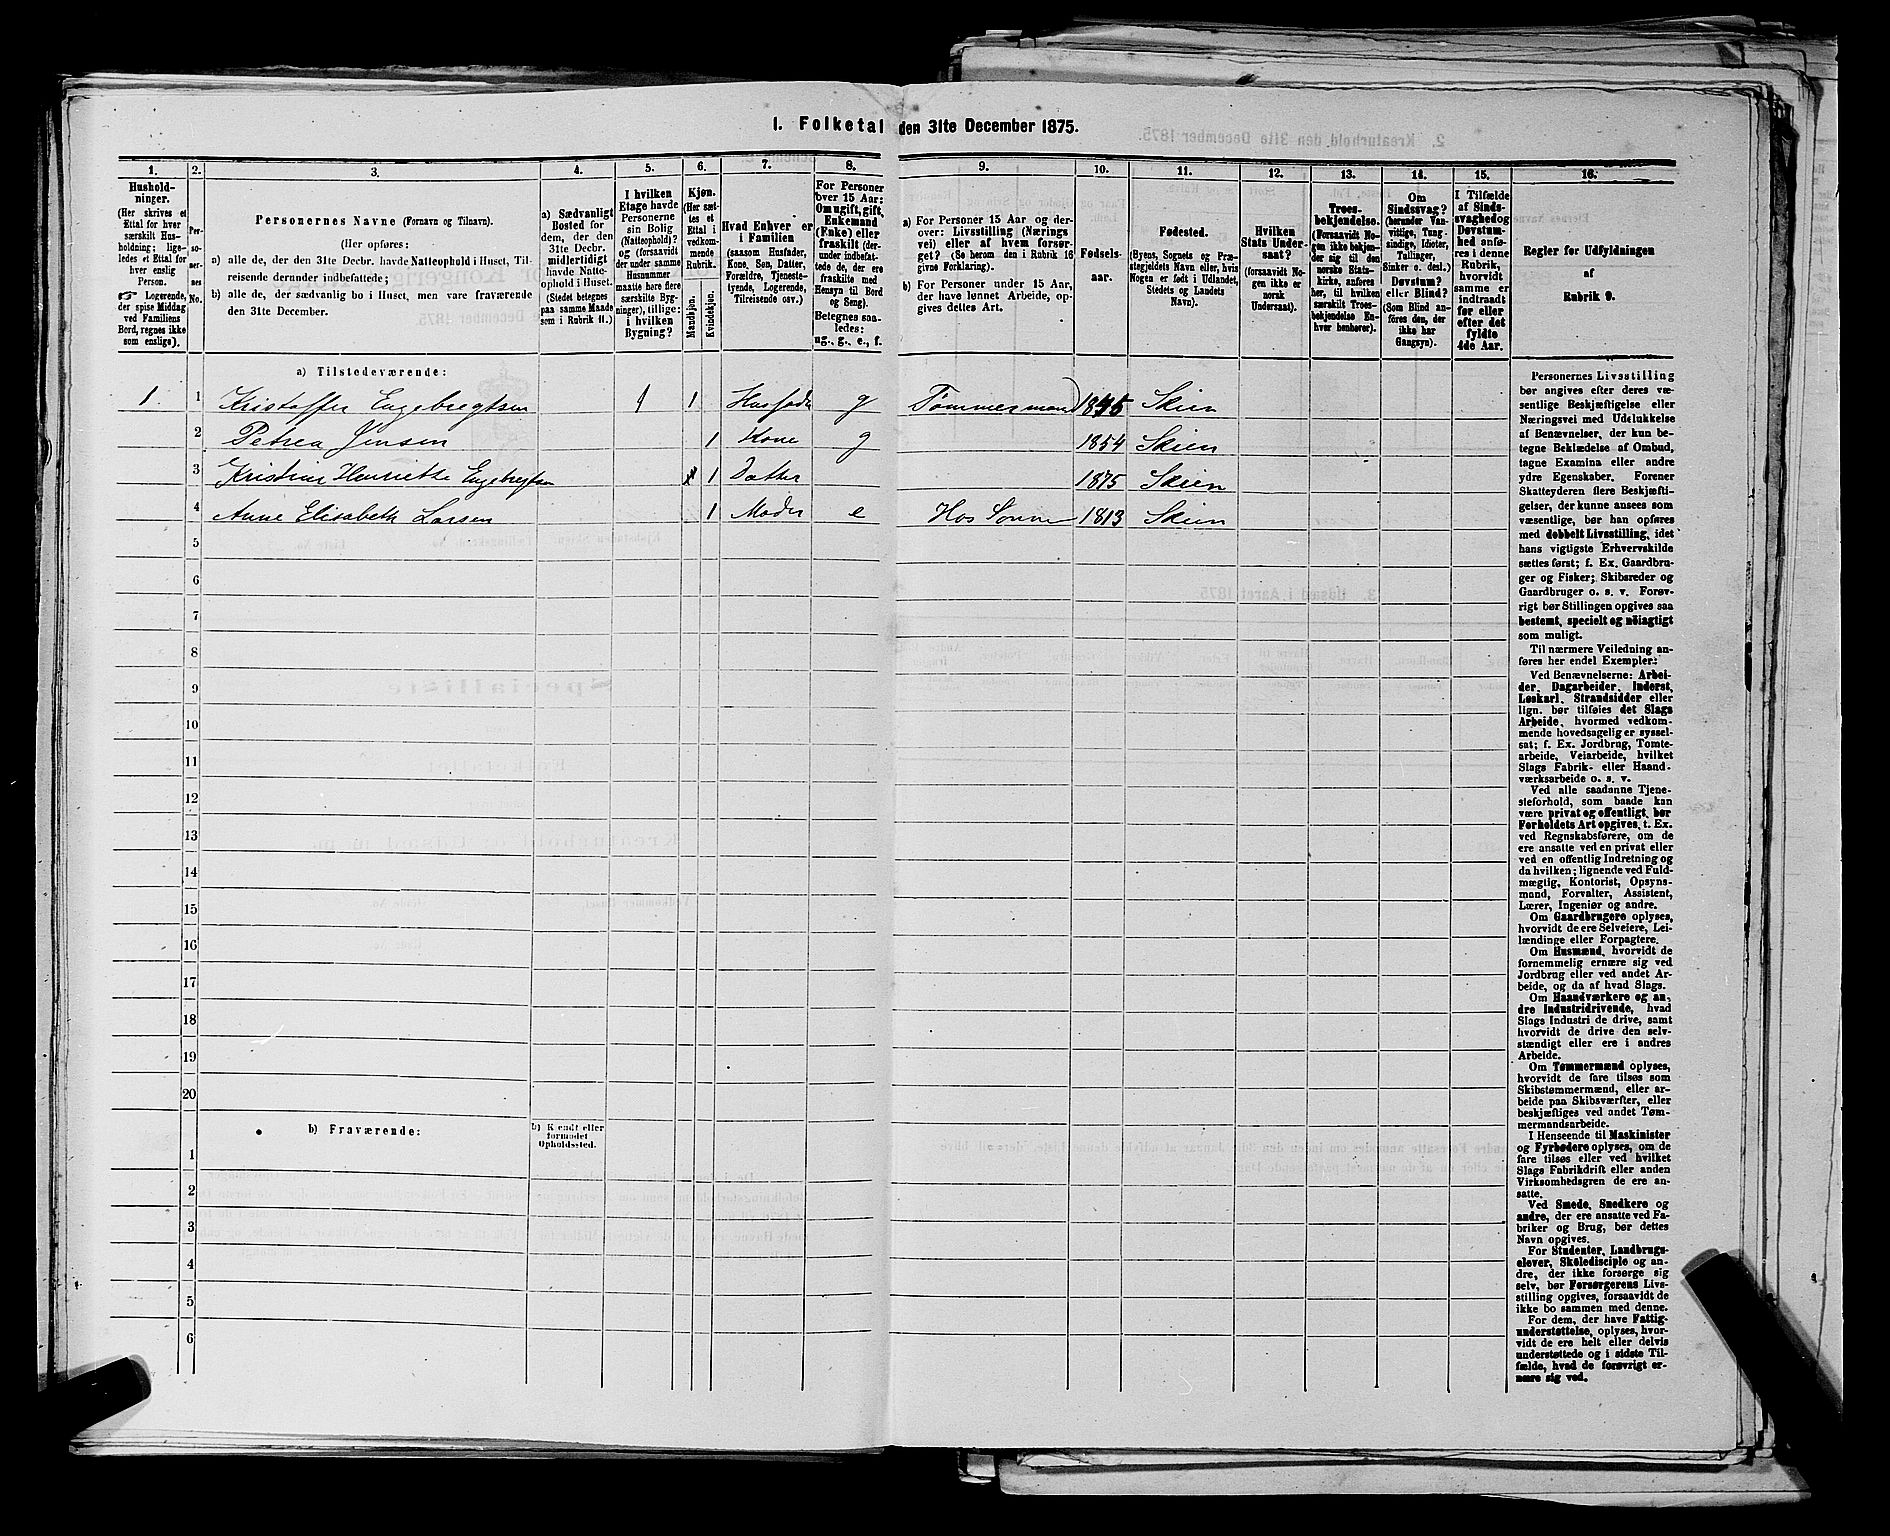 1. Folketal den 31te December 1875.
1. 2. 3. 4. 5. 6. 7. 8. 9. 10. 11. 12. 13. 14. 15. 16.
Hushold-
ninger.
(Her skrives et
Ettal for hver
særskilt Hus-
holdning; lige-
ledes et Ettal for
hver enslig
Person.
☞ Logerende,
der spise Middag
ved Familiens
Bord, regnes ikke
som enslige).
Per-
so-
ner-
nes
No.
Personernes Navne (Fornavn og Tilnavn).
(Her opføres:
a) alle de, der den 31te Decbr. havde Natteophold i Huset, Til-
reisende derunder indbefattede;
b) alle de, der sædvanlig bo i Huset, men vare fraværende
den 31te December.
a) Sædvanligt
Bosted for
dem, der den
31te Decbr.
midlertidigt
havde Natte-
ophold i Huset.
(Stedet betegnes
paa samme Maade
som i Rubrik 11.)
I hvilken
Etage havde
Personerne
sin Bolig
(Natteophold)?
og (forsaavidt
der under samme
Husnummer
maatte høre flere
særskilte Byg-
ninger), tillige:
i hvilken
Bygning?
Kjøn.
(Her sæt-
tes et
Ettal i
vedkom-
mende
Rubrik.
Mandkjøn.
Kvindekjøn.
Hvad Enhver er
i Familien
(saasom Husfader,
Kone, Søn, Datter,
Forældre, Tjeneste-
tyende, Logerende,
Tilreisende osv.)
For Personer
over 15 Aar:
Om ugift, gift,
Enkemand
(Enke) eller
fraskilt (der-
under indbefat-
tede de, der ere
fraskilte med
Hensyn til Bord
og Seng).
Betegnes saa-
ledes:
ug., g., e., f.
a) For Personer 15 Aar og der-
over: Livsstilling (Nærings
vei) eller af hvem forsør-
get? (Se herom den i Rubrik 16
givne Forklaring).
b) For Personer under 15 Aar,
der have lønnet Arbeide, op-
gives dettes Art.
Fødsels-
aar.
Fødested.
(Byens, Sognets og Præ-
stegjeldets Navn eller, hvis
Nogen er født i Udlandet,
Stedets og Landets
Navn).
Hvilken
Stats Under-
saat?
(forsaavidt No-
gen ikke er
norsk
Undersaat).
Troes-
bekjendelse.
(Forsaavidt No-
gen ikke bekjen-
der sig til den
norske Stats-
kirke, anføres
her, til hvilken
særskilt Troes-
bekjendelse En-
hver henhører).
Om
Sindssvag?
(herunder Van-
vittige, Tung-
sindige, Idioter,
Tullinger,
Sinker o. desl.)
Døvstum?
eller Blind?
(Som Blind an-
føres den, der
ikke har
Gangsyn).
I Tilfælde
af Sinds-
svaghed og
Døvstum-
hed anfø-
res i denne
Rubrik,
hvorvidt
samme er
indtraadt
før eller
efter det
fyldte
4de Aar.
Regler for Udfyldningen
af
Rubrik 9.
a) Tilstedeværende:
1 1 Kristoffer Engebregtsen 1 1 Husfader g Tømmermand 1845 Skien
2 Petrea Jensen 1 Kone g 1854 Skien
3 Kristine Henriette Engebregtsen 1 Datter 1875 Skien
4 Anne Elisabeth Larsen 1 Moder e Hos Sønnen 1813 Skien
5
6
7
8
9
10
11
12
13
14
15
16
17
18
19
20
b) Fraværende:
b) Kjendt eller
formodet
Opholdssted.
1
2
3
4
5
6
Personernes Livsstilling
bør angives efter deres væ-
sentlige Beskjæftigelse eller
Næringsvei med Udelukkelse
af Benævnelser, der kun be-
tegne Beklædelse af Ombud,
tagne Examina eller andre
ydre Egenskaber. Forener
Skatteyderen flere Beskjæfti-
gelser, der kunne ansees som
væsentlige, bør han opføres
med dobbelt Livsstilling, idet
hans vigtigste Erhvervskilde
sættes først; f. Ex. Gaardbru-
ger og Fisker; Skibsreder og
Gaardbruger o. s. v. Forøv-
rigt bør Stillingen opgives saa
bestemt, specielt og nöiagtigt
som muligt.
Til nærmere Veiledning an-
føres her endel Exempler:
Ved Benævnelserne: Arbei-
der, Dagarbeider, Inderst,
Løskarl, Strandsidder eller
lign. bør tilføies det Slags
Arbeide, hvormed vedkom-
mende hovedsagelig er syssel-
sat; f. Ex. Jordbrug, Tomte-
arbeide, Veiarbeide, hvilket
Slags Fabrik- eller Haand-
værksarbeide o. s. v.
Ved alle saadanne Tjene-
steforhold, som baade kan
være privat og offentligt, bør
Forholdets Art opgives, t. Ex.
ved Regnskabsførere, om de
ere ansatte ved en privat eller
ved en offentlig Indretning og
da hvilken; lignende ved Fuld-
mægtig, Kontorist, Opsyns-
mand, Forvalter, Assistent,
Lærer, Ingeniør og andre.
Om Gaardbrugere oplyses,
hvorvidt de ere Selveiere, Lei-
lændinge eller Forpagtere.
Om Husmænd, hvorvidt de
fornemmelig ernære sig ved
Jordbrug eller ved andet Ar-
beide, og da af hvad Slags.
Om Haandværkere og an-
dre Industridrivende, hvad
Slags Industri de drive, samt
hvorvidt de drive den selv-
stændigt eller ere i andres
Arbeide.
Om Tømmermænd oplyses,
hvorvidt de fare tilsøs som
Skibstømmermænd, eller ar-
beide paa Skibsværfter, eller
beskjæftiges ved andet Tøm-
mermandsarbeide.
I Henseende til Maskinister
og Fyrbødere oplyses, om de
fare tilsøs eller ved hvilket
Slags Fabrikdrift eller anden
Virksomhedsgren de ere an-
satte.
Ved Smede, Snedkere og
andre, der ere ansatte ved Fa-
briker og Brug, bør dettes
Navn opgives.
For Studenter, Landbrugs-
elever, Skoledisciple og an-
dre, der ikke forsørge sig
selv, bør Forsørgerens Livs-
stilling opgives, forsaavidt de
ikke bo sammen med denne.
For dem, der have Fattig-
understøttelse, oplyses, hvor-
vidt de ere helt eller delvis
understøttede og i sidste Til-
fælde, hvad de forøvrigt er-
nære sig ved.